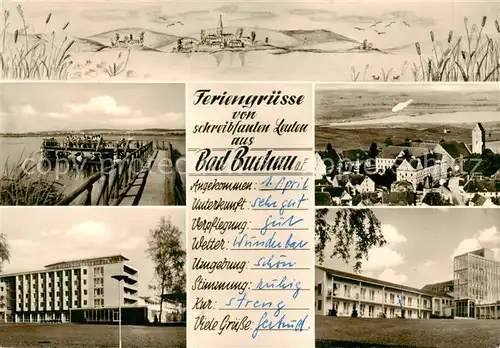 Feriengrüsse
von
schreibfaulen Leuten
aus
Bad Buchau a/F
Angekommen: 1. April
Unterkunft: sehr gut
Verpflegung: gut
Wetter: Wunderbar
Umgebung: schön
Stimmung: ruhig
Kur: streng
Viele Grüße: Gertrud